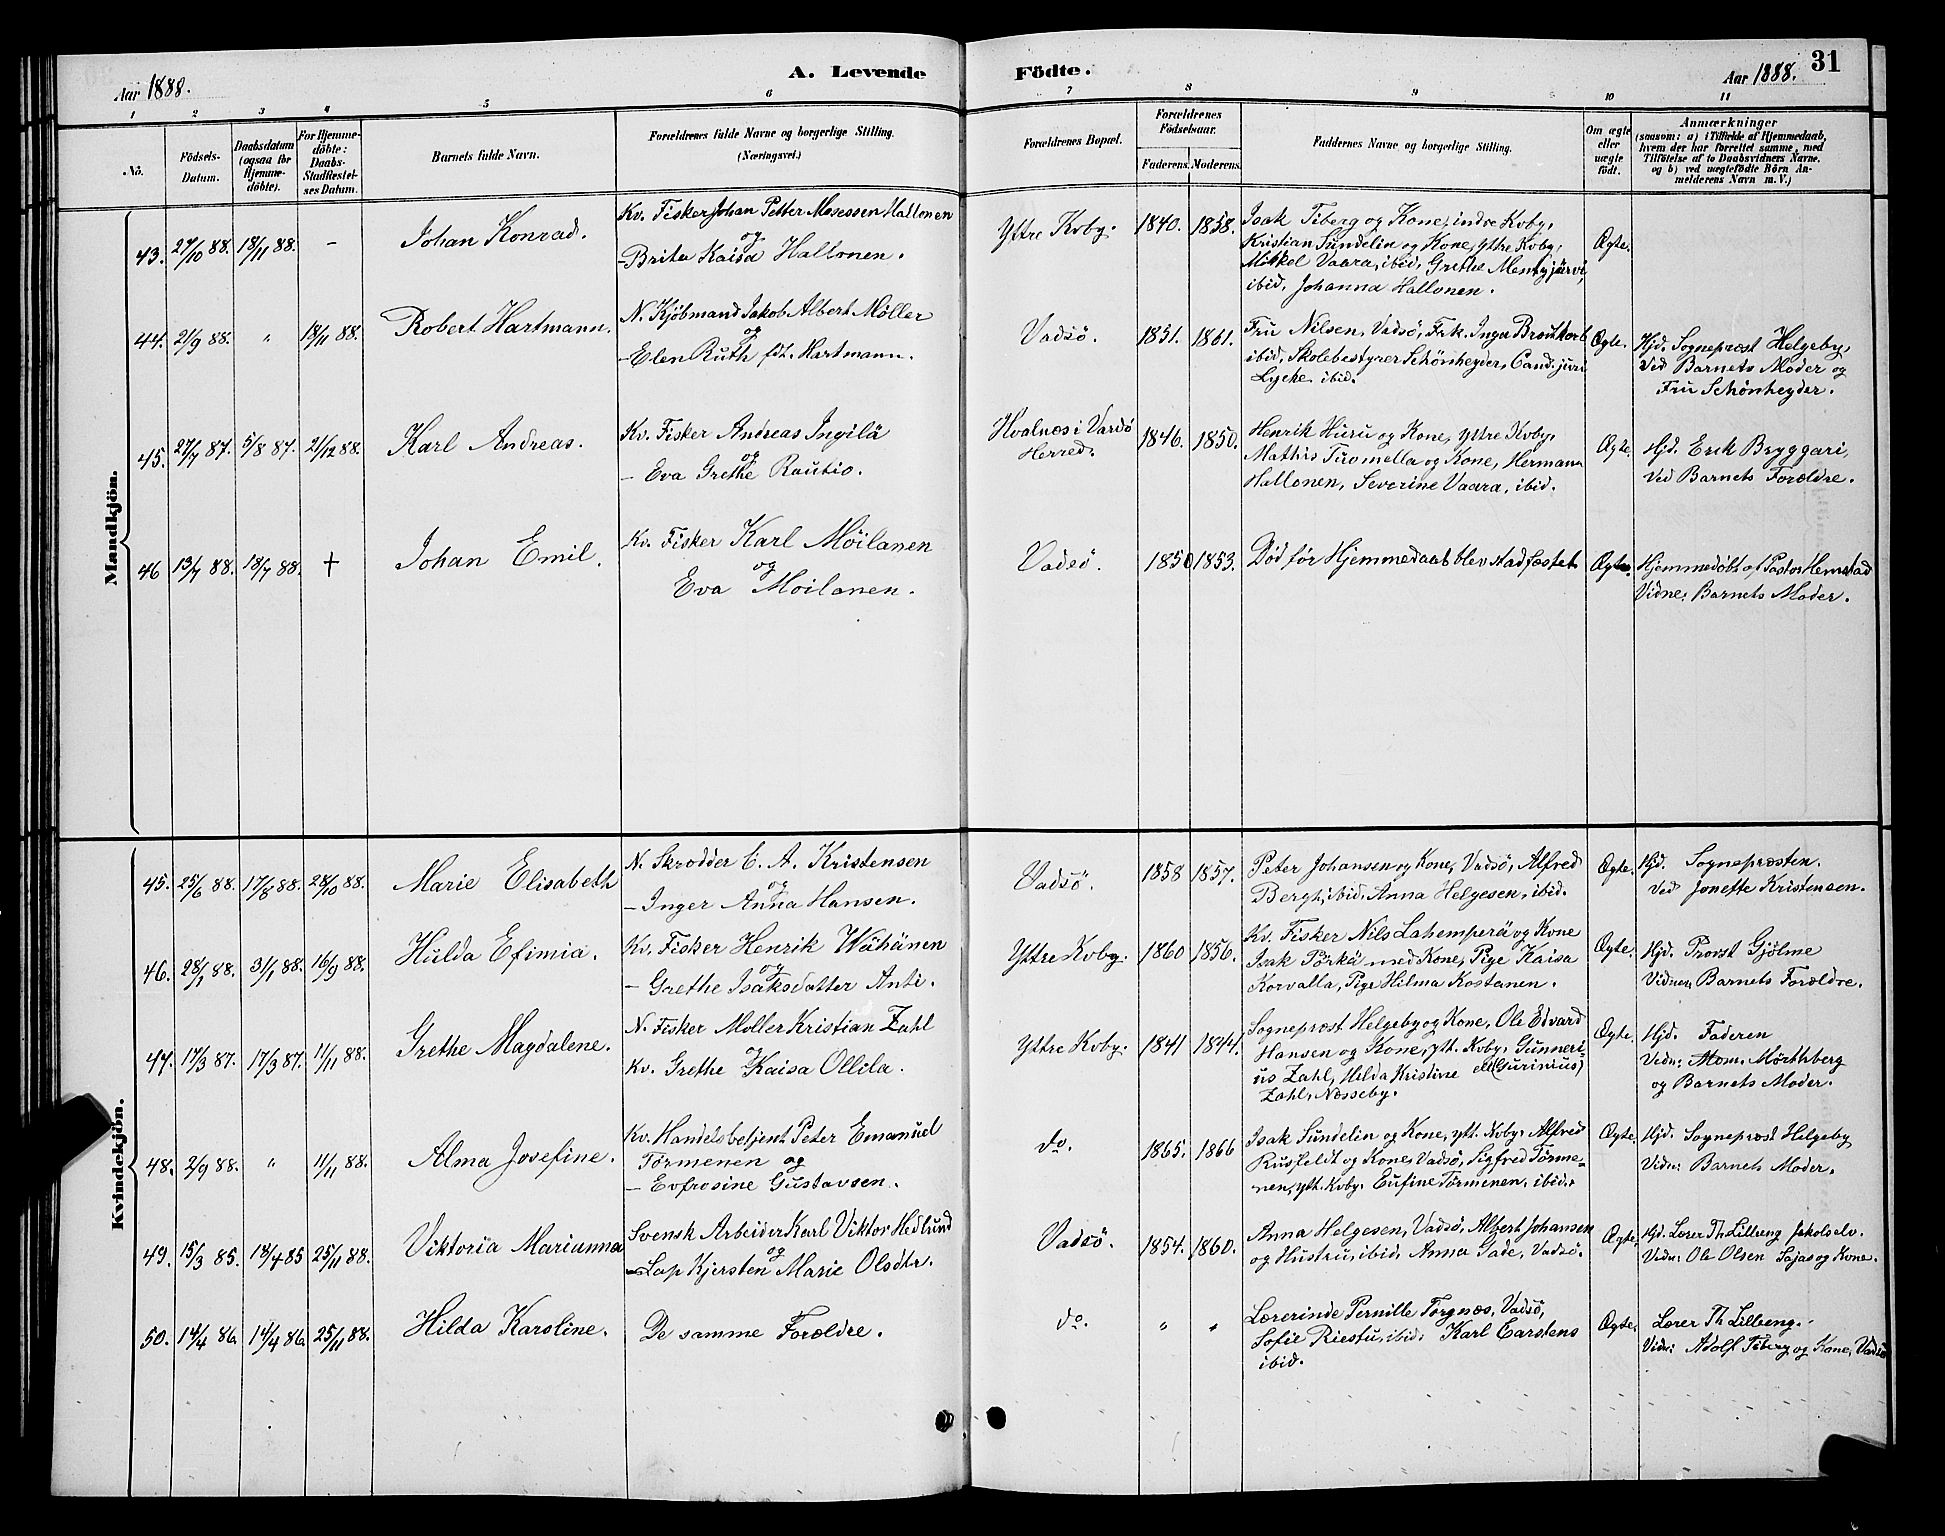 Aar 1888.
A. Levende Födte.
Aar 1888.
31
1 2 3 4 5 6 7 8 9 10 11
No.
Födsels-Datum.
Daabsdatum (ogsaa for Hjemmedöbte).
For Hjemmedöbte: Daabs-Stadfæstelses Datum.
Barnets fulde Navn.
Forældrenes fulde Navne og borgerlige Stilling.
(Næringsvei.)
Forældrenes Bopæl.
Forældrenes Födselsaar.
Faderens. Moderens.
Faddernes Navne og borgerlige Stilling.
Om ægte eller uægte födt.
Anmærkninger
(saasom: a) i Tilfælde af Hjemmedaab, hvem der har forrettet samme, med Tilföielse af to Daabsvidners Navne. og b) ved uægtefödte Börn Anmelderens Navn m. V.)
Mandkjön.
43. 27/10 88. 18/11 88. – Johan Konrad.
Kv. Fisker Johan Petter Mosessen Hallonen
og
– Brita Kaisa Hallonen.
Yttre Kvby. 1840. 1858.
Isak Tiberg og Kone, indre Kvby,
Kristian Sundelin og Kone, Yttre Kvby,
Mikkel Vaara, ibid, Grethe Mentyjärvi,
ibid, Johanna Hallonen.
Ægte.
44. 2/9 88. " 18/11 88. Robert Hartmann.
N. Kjöbmand Jakob Albert Möller
og
– Elen Ruth föt. Hartmann.
Vadsö. 1851. 1861.
Fru Nilsen, Vadsö, Frk. Inga Brodtkorb
ibid, Skolebestyrer Schönheyder, Cand. juris
Lycke ibid.
Ægte.
Hjd. Sognepræst Helgeby,
Ved Barnets Moder og
Fru Schönheyder.
45. 27/7 87. 5/8 87. 21/12 88. Karl Andreas.
Kv. Fisker Andreas Ingilä
og
– Eva Grethe Rautio.
Hvalnæs i Vardö
Herred. 1846. 1850.
Henrik Huru og Kone, Yttre Kvby,
Mathis Tuomella og Kone, Hermann
Hallonen, Severine Vaara, ibid.
Ægte.
Hjd. Erik Bryggari,
Ved Barnets Forældre.
46 13/7 88. 18/7 88. † Johan Emil.
Kv. Fisker Karl Möilanen
og
Eva Moilanen.
Vadsö. 1850 1853.
Död för Hjemmedaab blev stadfæstet
Ægte.
Hjemmedöbt af Pastor Hemstad
Vidne: Barnets Moder.
Kvindekjön.
45. 25/6 88. 17/8 88. 28/10 88. Marie Elisabeth
N. Skrædder C. A. Kristensen
og
– Inger Anna Hansen.
Vadsö. 1858 1857.
Peter Johansen og Kone, Vadsö, Alfred
Bergh, ibid, Anna Helgesen, ibid.
Ægte.
Hjd. Sognepræsten.
Ved Jonette Kristensen.
46. 28/1 88. 31/1 88. 16/9 88. Hulda Efimia.
Kv. Fisker Henrik Wähänen
og
– Grethe Isaksdatter Anti.
Yttre Kvby. 1860 1856.
Kv. Fisker Nils Lahemperä og Kone
Isak Pörkä med Kone, Pige Kaisa
Korvalla, Pige Hilma Kostanen.
Ægte.
Hjd. Provst Gjölme
Vidner: Barnets Forældre.
47. 17/3 87. 17/3 87. 11/11 88. Grethe Magdalene.
N. Fisker Moller Kristian Zahl
og
Kv. Grethe Kaisa Ollila.
Yttre Kvby. 1841 1844.
Sognepræst Helgeby og Kone, Ole Edvard
Hansen og Kone, ytt. Kvby, Gunneri-
us Zahl, Hilda Kristine ell (Gurinius)
Zahl, Næsseby.
Ægte.
Hjd. Faderen
Vidn: Mom. Mörthberg
og Barnets Moder.
48. 2/9 88. " 11/11 88. Alma Josefine.
Kv. Handelsbetjent Peter Emanuel
Törmenen og
– Evfrosine Gustavsen.
do. 1865. 1866
Isak Sundelin og Kone, ytt. Kvby, Alfred
Rusfeldt og Kone, Vadsö, Sigfred Törme-
nen, ytt. Kvby, Eufine Törmenen, ibid.
Ægte.
Hjd. Sognepræst Helgeby
Vidn: Barnets Moder.
49. 15/3 85. 18/4 85 25/11 88. Viktoria Marianna
Svensk Arbeider Karl Viktor Hedlund
og
– Lap Kjersten Marie Olsdtr.
Vadsö. 1854. 1860.
Anna Helgesen, Vadsö, Albert Johansen
og Hustru, ibid, Anna Gade, Vadsö.
Ægte.
Hjd. Lærer Th. Lilleeng Jakolselv.
Vidn: Ole Olsen Sajas og Kone.
50. 14/4 86. 14/4 86. 25/11 88. Hilda Karoline.
De samme Forældre.
do. " "
Lærerinde Pernille Torgnæs, Vadsö,
Sofie Riestu, ibid. Karl Carstens
ibid.
Ægte.
Lærer Th. Lilleeng.
Vidn: Adolf Tiberg og Kone, Vadsö